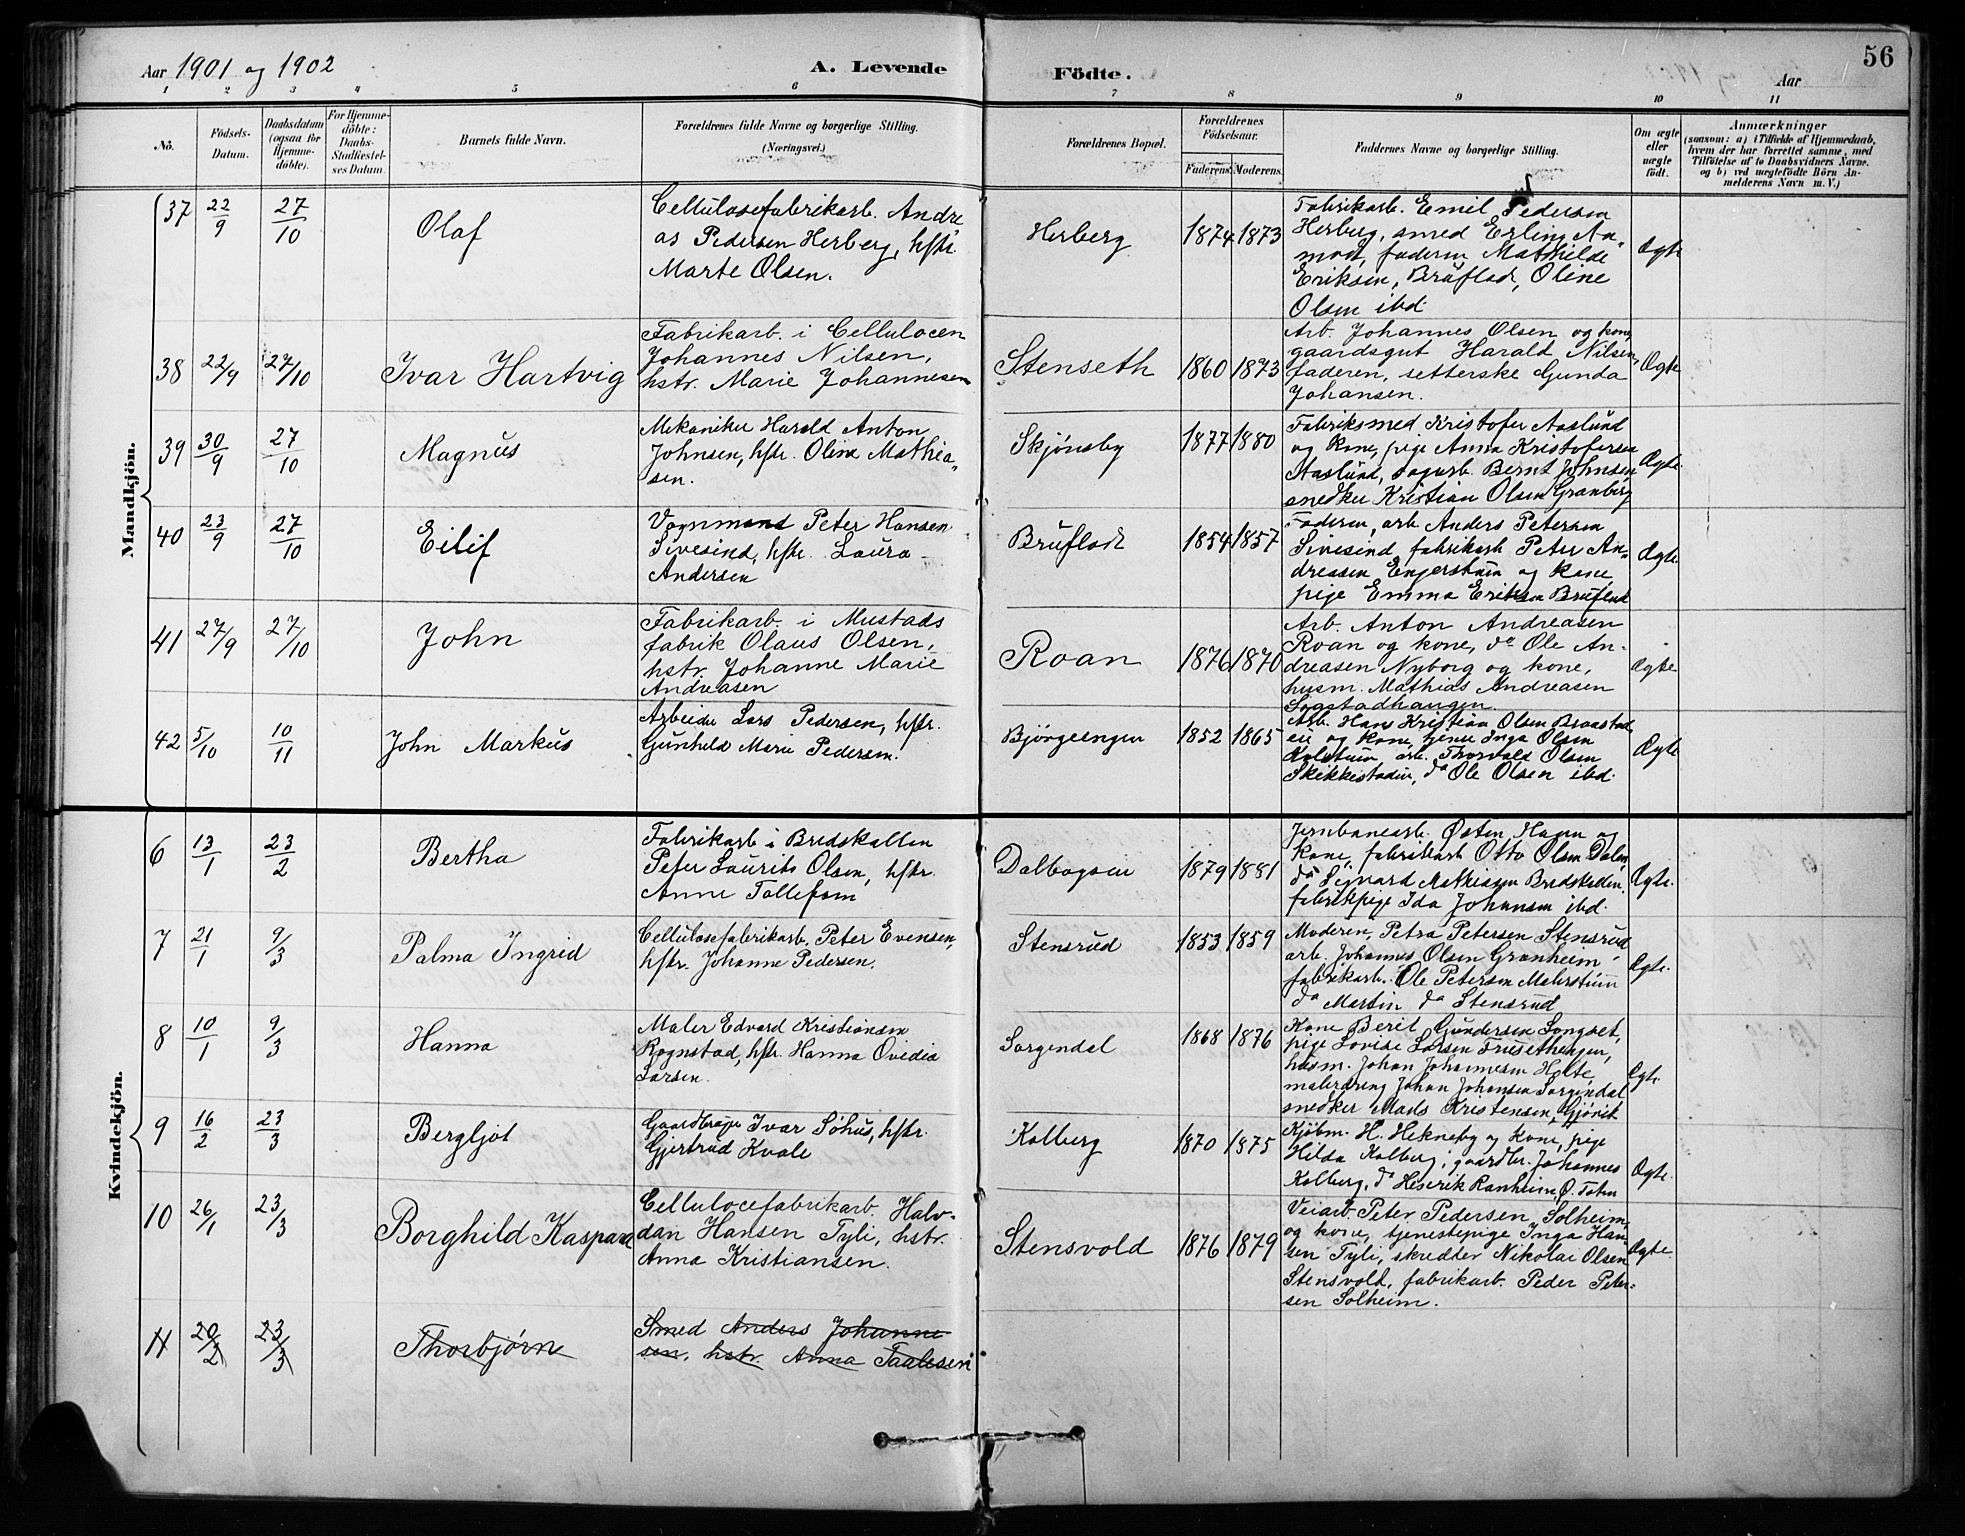 56
Aar 1901 og 1902
A. Levende
Födte.
Aar
1 2 3 4 5 6 7 8 9 10 11
No.
Födsels-
Datum.
Daabsdatum
(ogsaa for
Hjemme-
döbte).
For Hjemme-
döbte:
Daabs-
Stadfæstel-
ses Datum.
Barnets fulde Navn.
Forældrenes fulde Navne og borgerlige Stilling.
(Næringsvei.)
Forældrenes Bopæl.
Forældrenes
Födselsaar.
Faderens. Moderens.
Faddernes Navne og borgerlige Stilling.
Om ægte
eller
uægte
födt.
Anmærkninger
(saasom: a) i Tilfælde af Hjemmedaab,
hvem der har forrettet samme, med
Tilföielse af to Daabsvidners Navne.
og b) ved uægtefödte Börn An-
melderens Navn m. V.)
Mandkjön.
37 22/9 27/10 Olaf
Cellulosefabrikarb. Andre
as Pedersen Herberg, hstr.
Marte Olsen.
Herberg 1874 1873
Fabrikarb. Emil Pedersen
Herberg, smed Erling An
mod, faderen Mathilde
Eriksen, Bruflad, Oline
Olsen ibd.
Ægte
38 22/9 27/10 Ivar Hartvig
Fabrikarb. i Cellulocen
Johannes Nilsen,
hstr. Marie Johannesen
Stenseth 1860 1873
Arb. Johannes Olsen og kone,
gaardsgut Harald Nilsen,
faderen, setterske Gunda
Johansen.
Ægte
39 30/9 27/10 Magnus
Mekaniker Harald Anton
Johnsen, hstr. Oline Mathia-
sen.
Skjønsby 1877 1880
Fabriksmed Kristofer Aaslund
og kone, pige Anna Kristofersen
Aaslund, dagarb. Bernt Johnsen
snedker Kristian Olsen Granberg
Ægte.
40 23/9 27/10 Eilif
Vognmand Peter Hansen
Sivesind, hstr. Laura
Andersen
Bruflad 1854 1857
Faderen, arb. Anders Petersen
Sivesind, fabrikarb Peter An-
dreasen Engerstuen og kone,
pige Emma Eriksen Bruflad
Ægte.
41 27/9 27/10 John
Fabrikarb. i Mustads
fabrik Olaus Olsen,
hstr. Johanne Marie
Andreasen
Roan 1876 1870
Arb. Anton Andreasen
Roan og kone, do Ole An-
dreasen Nyborg og kone,
husm. Mathias Andreasen
Sogstadhangen.
Ægte
42 5/10 10/11 John Markus
Arbeider Lars Pedersen, hstr.
Gunhild Marie Pedersen.
Bjørgeengen 1852 1865
Arb. Hans Kristian Olsen Braastad
eie og kone, tjener Inga Olsen
arb. Thorvald Olsen
Skikkestadeie, do Ole Olsen ibd.
Ægte
Kvindekjön.
6 13/1 23/2 Bertha
Fabrikarb i Bredskallen
Peter Laurits Olsen, hstr.
Anne Tollefsen
Dalbogseie 1879 1881
Jernbanearb. Østen Hagen og
kone, fabrikarb Otto Olsen Dalen,
do Sigvard Mathiasen Bredskallen,
fabrikpige Ida Johansen ibd.
Ægte.
7 21/1 9/3 Palma Ingrid
Cellulosefabrikarb. Peter Evensen,
hstr. Johanne Pedersen.
Stensrud 1853 1859
Moderen, Petra Petersen Stensrud
arb. Johannes Olsen Granheim
fabrikarb. Ole Petersen
do Martin do Stensrud
Ægte.
8 10/1 9/3 Hanna
Maler Edvard Kristiansen
Rognstad, hstr. Hanna Ovedia
Larsen.
Sorgendal 1868 1876
Kone Berit Gundersen Songset,
pige Lovise Larsen Frusethengen,
husm. Johan Johannesen Holte,
malerdreng Johan Johansen Sorgendal
snedker Mads Kristensen, Gjøvik
Ægte.
9 16/2 23/3 Bergljot
Gaardbruger Ivar Søhus, hstr.
Gjertrud Kvale
Kalberg 1870 1875
Kjøbm. H. Hekneby og kone, pige
Hilda Kalberg, gaardbr. Johannes
Kalberg, do Henrik Ranheim, Ø. Toten
Ægte.
10 26/1 23/3 Borghild Kaspara
Cellulocefabrikarb. Halv-
dan Hansen Tyli, hstr.
Anna Kristiansen.
Stensvold 1876 1879
Veiarb. Peter Pedersen Solheim,
og kone, tjenestepige Inga Han
sen Tyli, skrædder Nikolai Olsen
Stensvold, fabrikarb. Peder Peter-
sen Solheim.
Ægte
11 20/2 23/3 Thorbjørn
Smed Anders Johanne
sen, hstr. Anna Taalesen